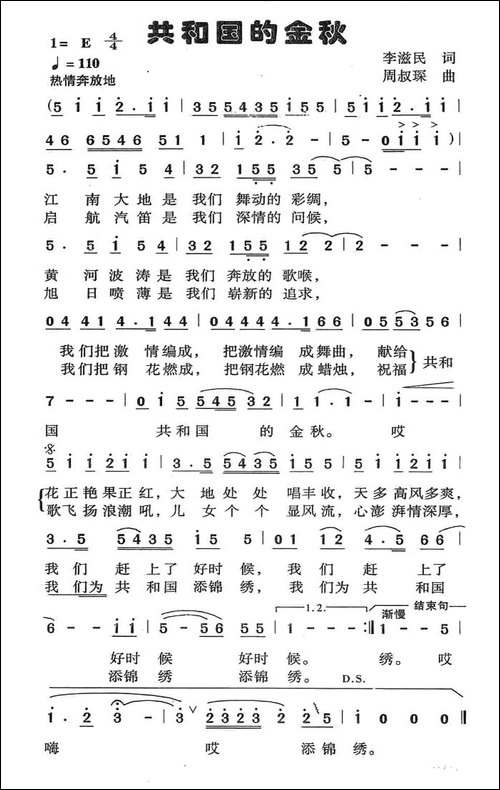 共和国的金秋
1= E 4/4
♩=110
热情奔放地
李滋民 词
周叔琛 曲
(5 1 1 2.1 1 | 3 5 5 4 3 5 1 5 5 | 5 1 1 2.1 1 |
4 6 6 5 4 6 5 1 1 | 1 2.2 - | 5 - 0 1 1 1 ) |
5. 5 1 5 4 | 3 2 1 5 5 3 5 5 - |
江 南 大 地 是 我 们 舞动的 彩绸,
启 航 汽 笛 是 我 们 深情的 问候,
5. 5 1 5 4 | 3 2 1 5 5 1 2 2 | 2 - - - |
黄 河 波 涛 是 我们 奔放的 歌喉,
旭 日 喷 薄 是 我们 崭新的 追求,
0 4 4 1 4. 1 4 4 | 0 4 4 4 4. 1 6 6 | 0 5 5 3 5 6 |
我们把激 情编成, 把激情编 成舞曲, 献给 共和
我们把钢 花燃成, 把钢花燃 成蜡烛, 祝福
7 - - - | 0 1 5 5 4 5 3 2 | 1 1. 1 - | 1 - - - |
国 共和国 的 金 秋。 哎
5 1 1 1 2 1 1 | 3. 5 5 4 3 5 | 1 2 1 1 5 1 1 |
花正艳 果正红, 大 地 处 处 唱丰收, 天多高风多爽,
歌飞扬 浪潮吼, 儿 女 个 个 显风流, 心澎湃情深厚,
3. 5 5 4 3 5 | 1 5 5 - | 0 1 1 2 4. 5 6 6 |
我 们 赶 上 了 好时 候, 我 们 赶 上了
我 们为 共 和国 添锦 绣, 我 们为 共 和国
6 - - 1 1 | 5 - 5 6 5 5 | 1 - - - :| 1 - - 5 |
1.2. 渐慢 结束句
好时 候 好时 候。 绣。 哎
添锦 绣 添锦 绣。 D.S.
1. 2 3 - | 3 2 3 2 3 2 2 1 5 | 1 0 0 0 ||
嗨 哎 添锦 绣。